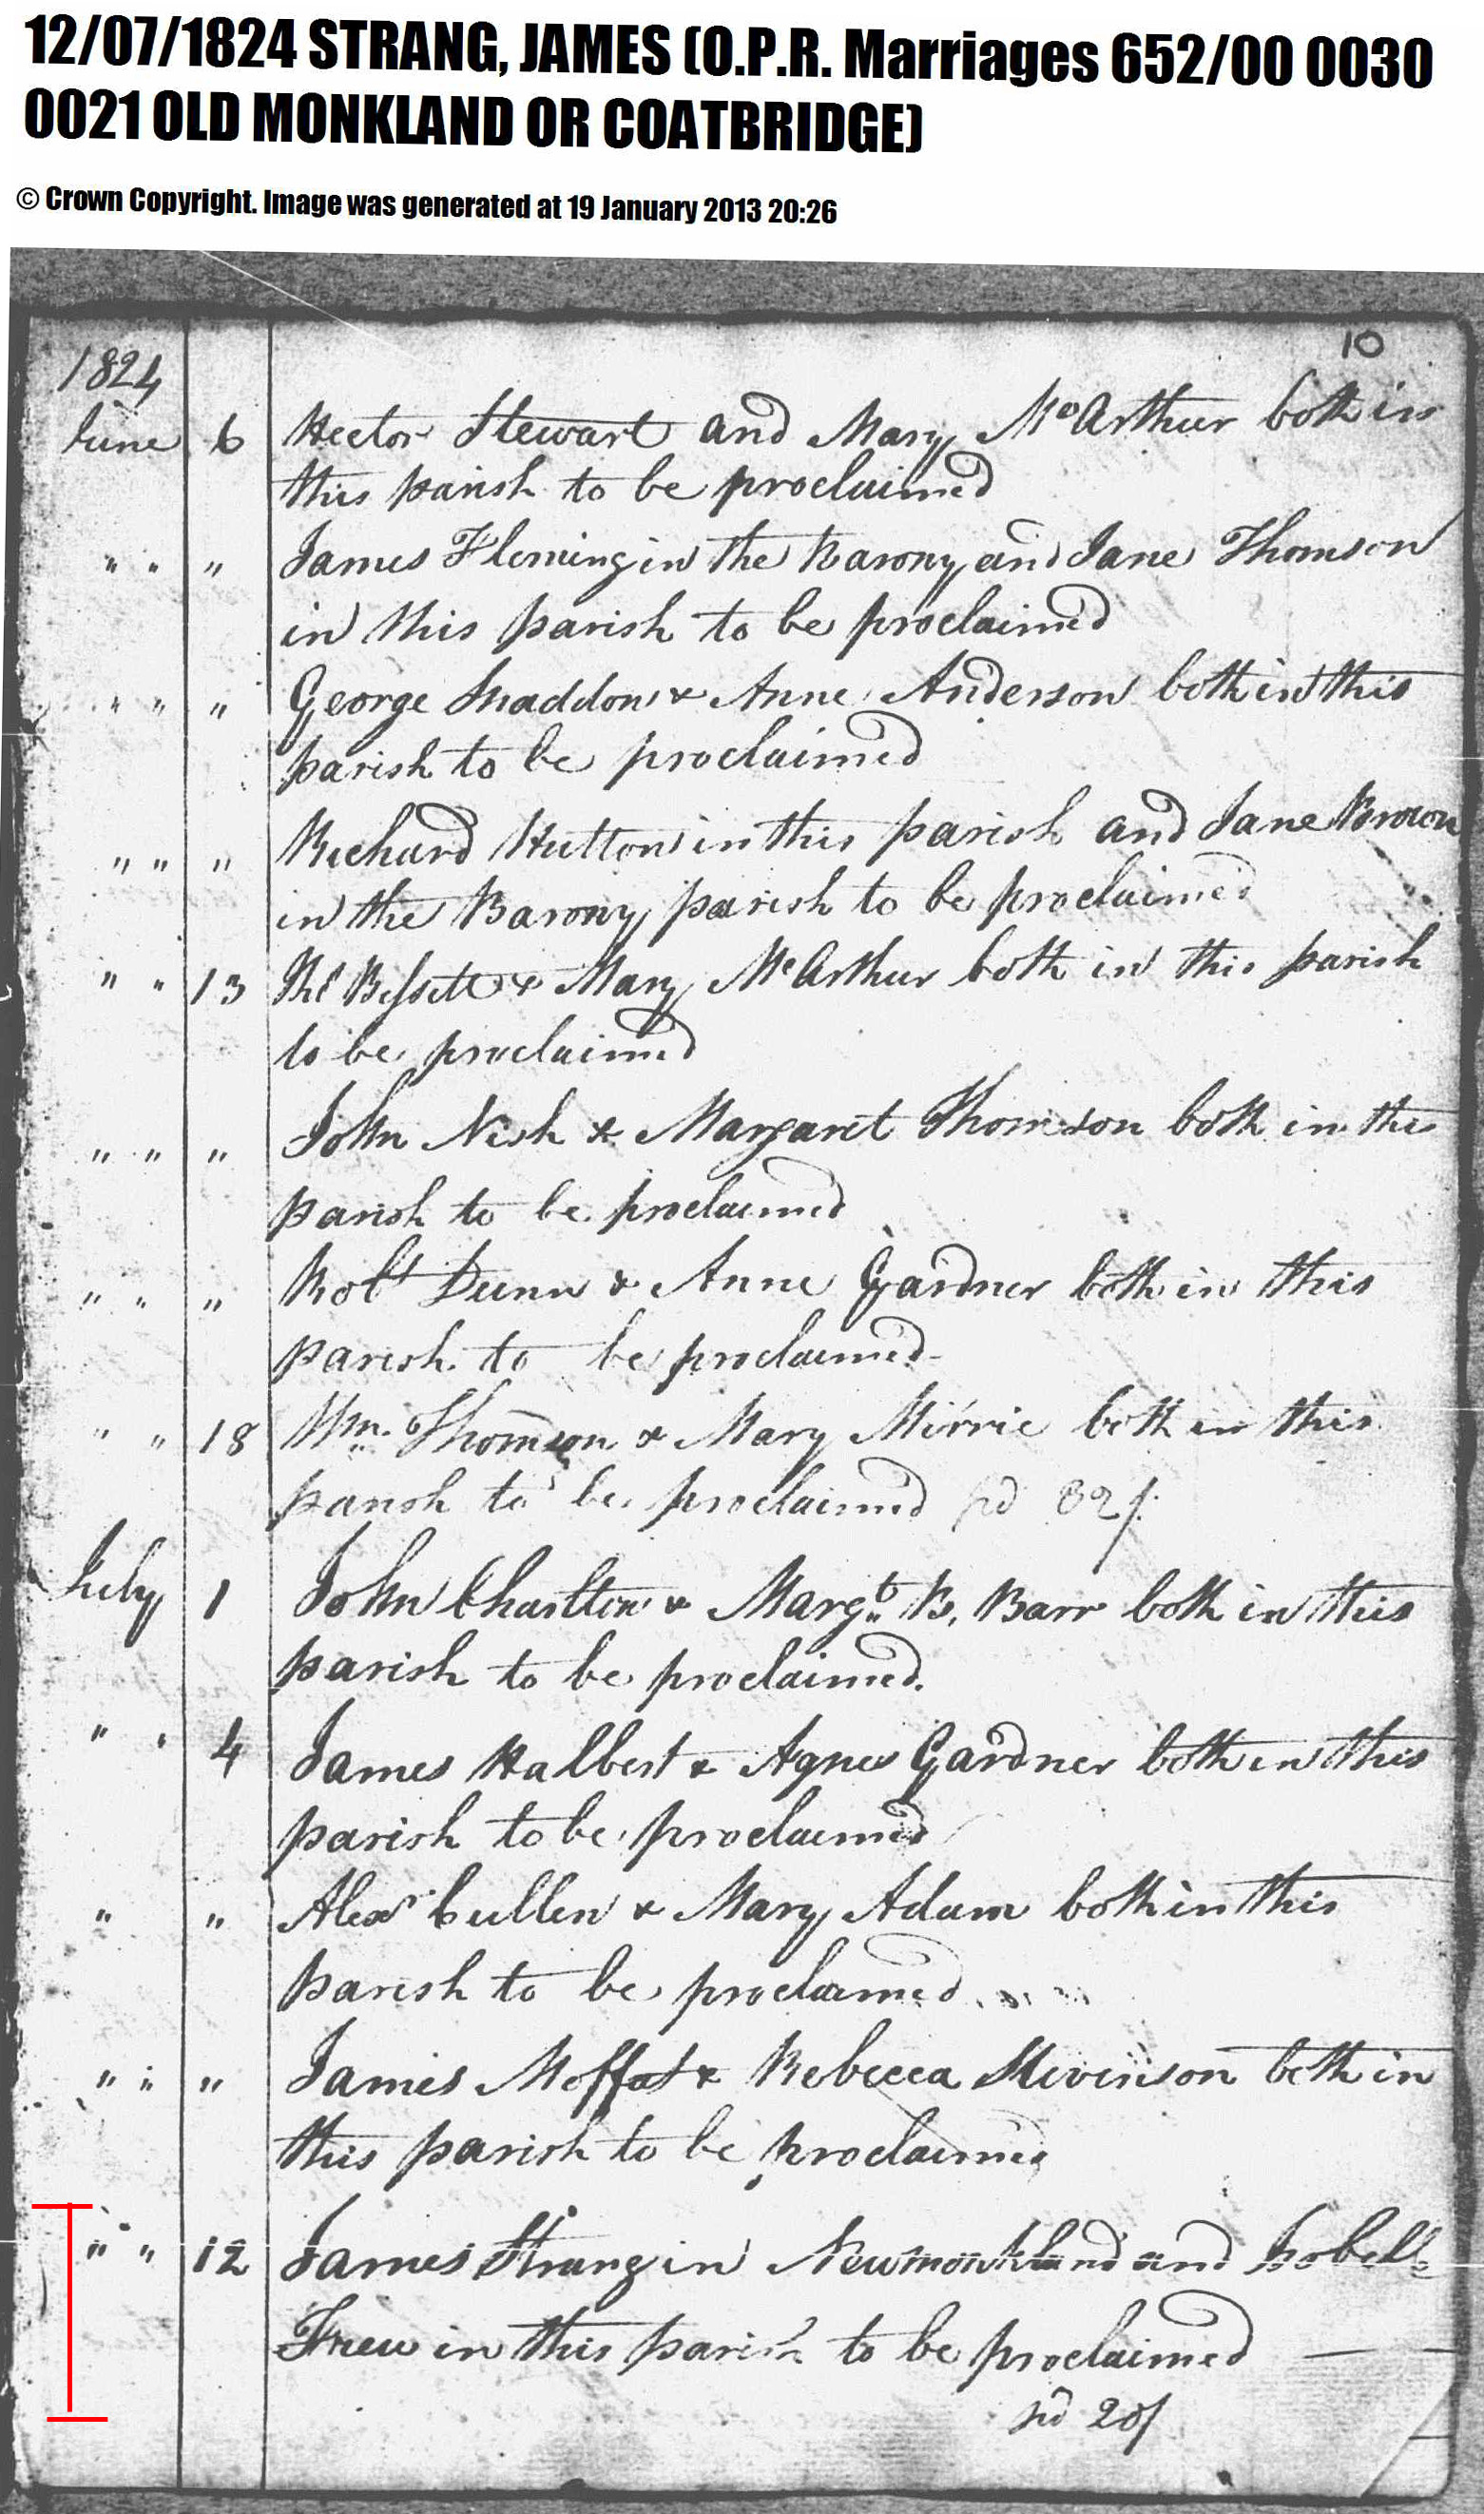 12/07/1824 STRANG, JAMES (O.P.R. Marriages 652/00 0030
0021 OLD MONKLAND OR COATBRIDGE)
© Crown Copyright. Image was generated at 19 January 2013 20:26
10
1824
June 6 Hector Stewart and Mary McArthur both in
this parish to be proclaimed
" " " James Fleming in the Barony and Jane Thomson
in this parish to be proclaimed
" " " George Snaddon & Anne Anderson both in this
parish to be proclaimed
" " " Richard Hutton in this parish and Jane Brown
in the Barony parish to be proclaimed
" " 13 & Mary McArthur both in this parish
to be proclaimed
" " " John Nish & Margaret Thomson both in this
parish to be proclaimed
" " " Robt Dunn & Anne Gardner both in this
parish to be proclaimed
" " 18 Wm. Thomson & Mary Mirrie both in this
parish to be proclaimed pd
July 1 John Charlton & Margt B. Barr both in this
parish to be proclaimed.
" " 4 James Halbert & Agnes Gardner both in this
parish to be proclaimed
" " Alexr Cullen & Mary Adam both in this
parish to be proclaimed
" " " James Moffat & Rebecca Stevenson both in
this parish to be proclaimed
" " 12 James Strang in Newmonkland and Isobell
Frew in this parish to be proclaimed
pd 20/